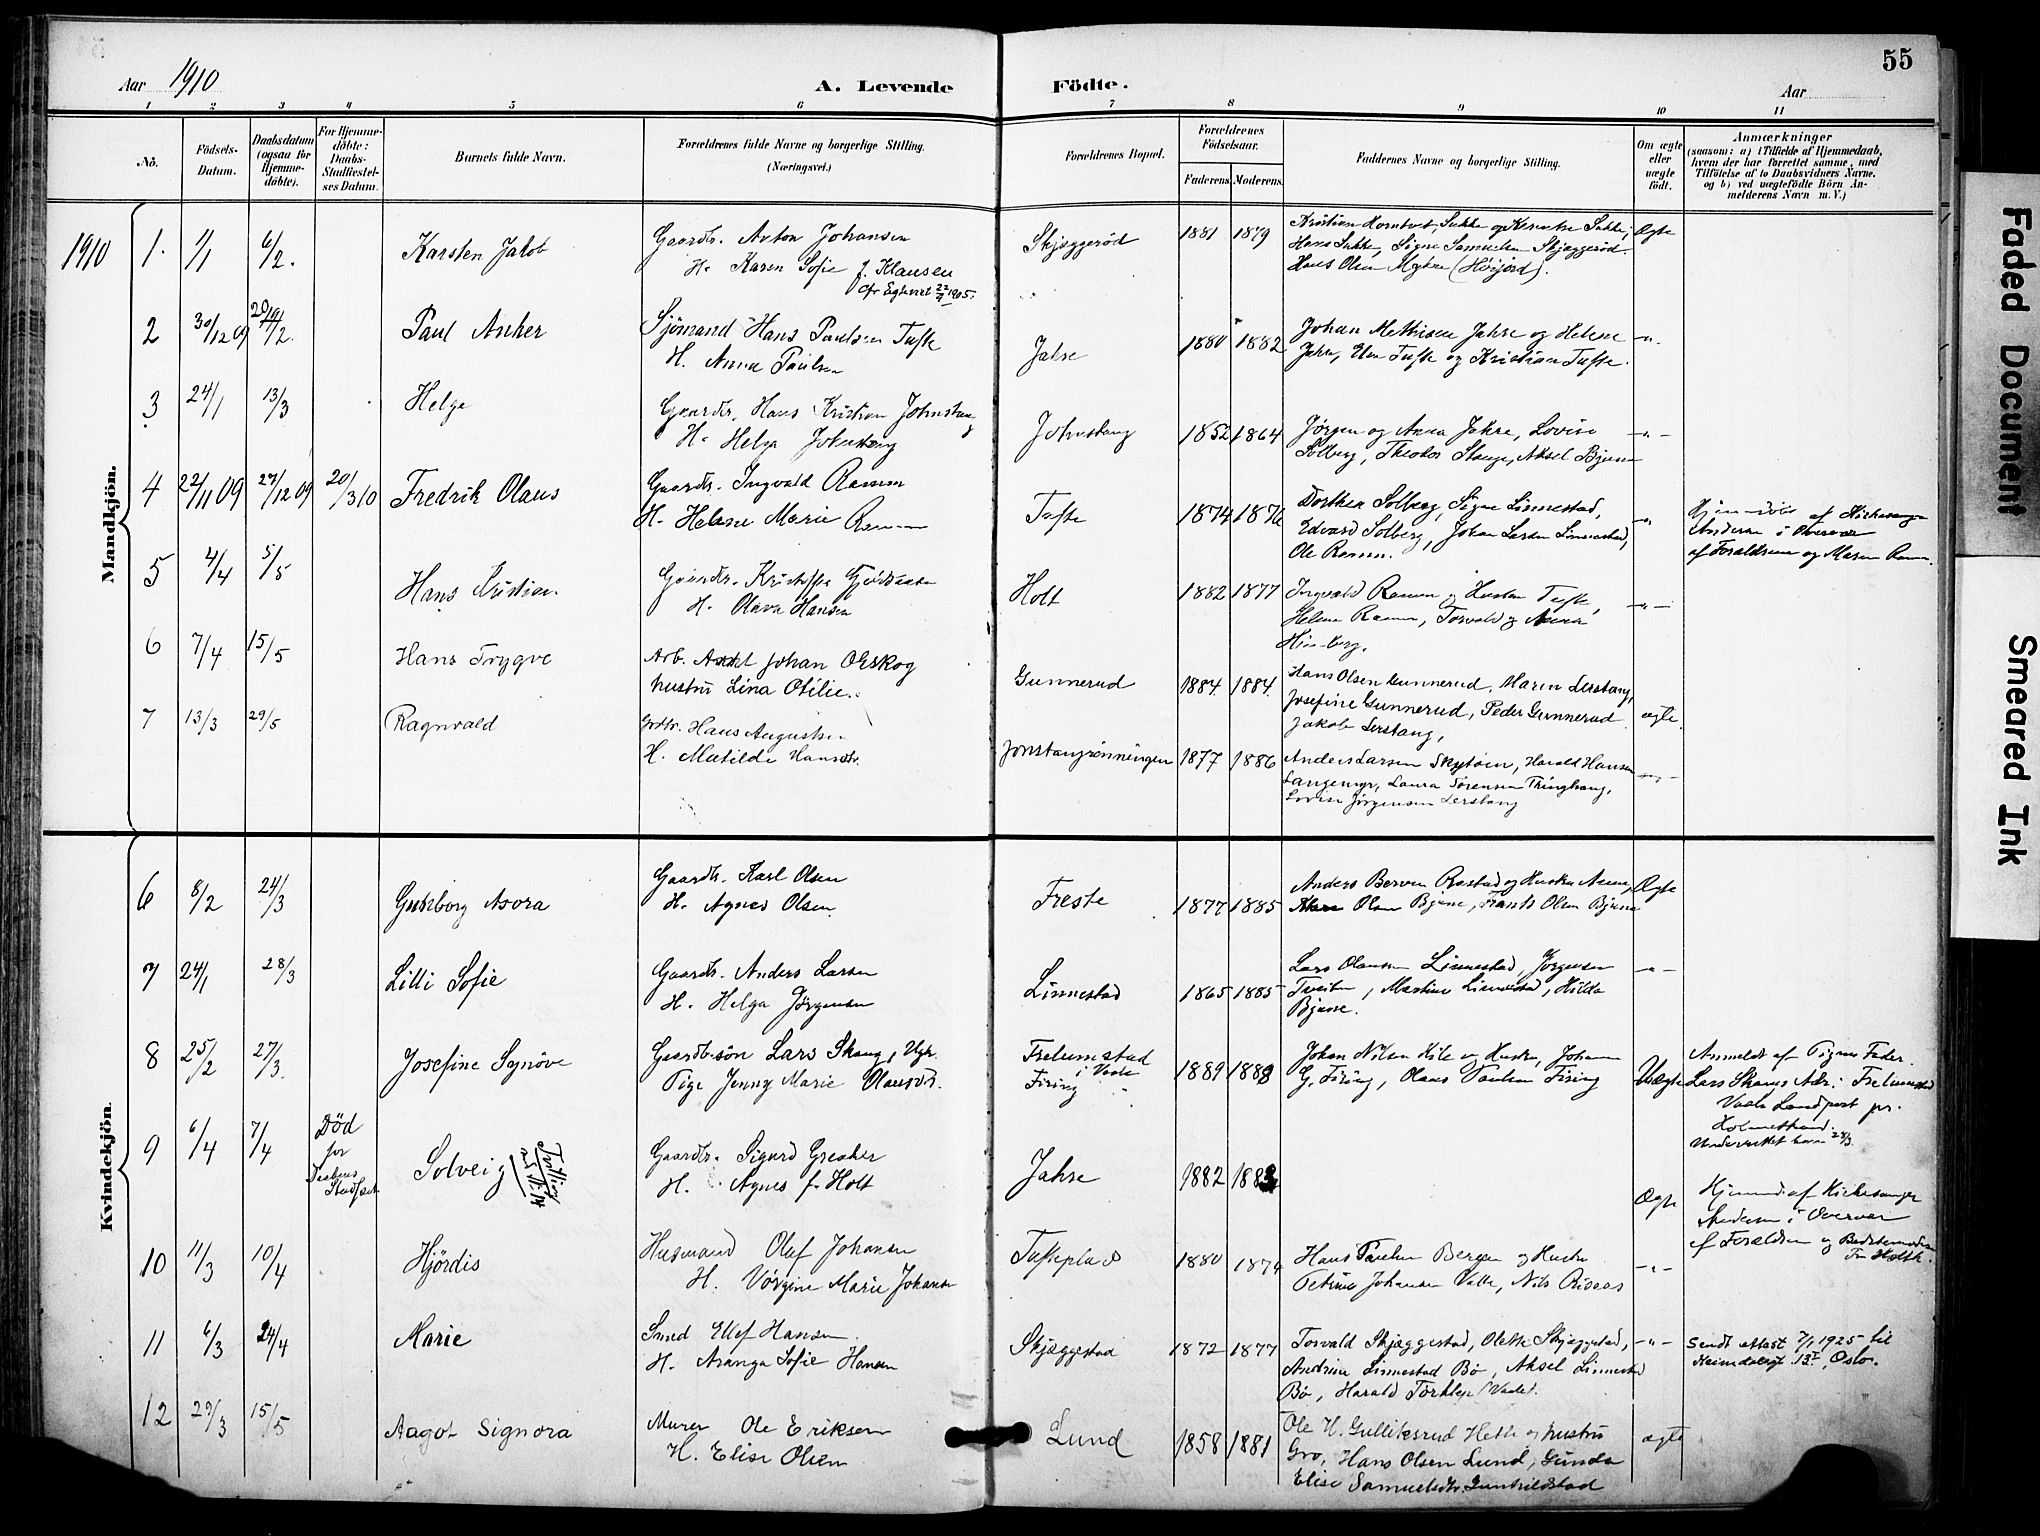 55
Aar 1910
A. Levende
Födte.
Aar
1 2 3 4 5 6 7 8 9 10 11
No.
Födsels-
Datum.
Daabsdatum
(ogsaa for
Hjemme-
döbte).
For Hjemme-
döbte:
Daabs-
Stadfæstel-
ses Datum.
Barnets fulde Navn.
Forældrenes fulde Navne og borgerlige Stilling.
(Næringsvei.)
Forældrenes Bopæl.
Forældrenes
Födselsaar.
Faderens. Moderens.
Faddernes Navne og borgerlige Stilling.
Om ægte
eller
uægte
födt.
Anmærkninger
(saasom: a) i Tilfælde af Hjemmedaab,
hvem der har forrettet samme, med
Tilföielse af to Daabsvidners Navne.
og b) ved uægtefödte Börn An-
melderens Navn m.V.)
Mandkjön.
1910 1. 1/1 6/2. Karsten Jakob
Gaardbr. Anton Johansen
H. Karen Sofie f. Klausen
Skjæggerød 1881 1879
Hans Sukke, Signe Samuelsen Skjæggerød.
Hans Olsen Myhre (Hørjord).
Ægte
2 30/12 09 Paul Anker
Sjömand Hans Paulsen Tufte
H. Anna Paulsen
Jahre 1880 1882
Johan Mathisen Jahre og Helene
Jahre, Elen Tufte og Kristian Tufte.
-"-
3 24/1 13/3 Helge
Gaardbr. Hans Kristian Johnstang
H. Helga Johnstang
Johnstang 1852 1864
Jørgen og Anna Jahre, Lovise
Solberg, Theodor Stange, Aksel Bjune
-"-
4 22/11 09 27/12 09 20/3 10 Fredrik Olaus
Gaardbr. Ingvald Ramm
H. Helene Marie Ramm
Tufte 1874 1876
Dorthea Solberg, Signe Linnestad,
Edvard Solberg, Johan Larsen Linnestad,
Ole Ramm.
-"-
Hjemmedöbt af Kirkesanger
Andersen i
af Forældrene og Maren Ramm
5 4/4 5/5 Hans Kristian
Gaardbr. Kristoffer
H. Olava Hansen
Holt 1882 1877
Ingvald Ramm og Hustru Tufte,
Helene Ramm, Torvald og Anna
-"-
6 7/4 15/5 Hans Trygve
Arb. Johan Orskog
hustru Lina Otilie.
Gunnerud 1884 1884
Hans Olsen Gunnerud, Maren Lerstang,
Josefine Gunnerud, Peder Gunnerud
Jakob Lerstang,
ægte.
7 13/3 29/5 Ragnvald
Grdbr. Hans Augustsen
H. Matilde Hansdtr.
Jonstangrønningen 1877 1886
Anders Larsen Skytøen, Harald Hansen
Langemyr, Laura Sørensen Thinghaug,
Lovise Jørgensen Lerstang
-"-
Kvindekjön.
6 8/2 24/3 Gunborg Asora
Gaardbr. Karl Olsen
H. Agnes Olsen
Freste 1877 1885
Anders Berven Rastad og Hustru Anne,
Olsen Bjune, Frants Olsen Bjune
Ægte
7 24/1 28/3 Lilli Sofie
Gaardbr. Anders Larsen
H. Helga Jørgensen
Linnestad 1865 1885
Lars Olausen Linnestad, Jørgensen
Tveiten, Martine Linnestad, Hilda
Bjune.
-"-
8 25/2 27/3. Josefine Synöve
Gaardb.sön Lars Skaug, Ugk.
Pige Jenny Marie Olausdtr.
Frelumstad
i Vaale
Firing
1889 1888
Johan Nilsen Kile og Hustru, Johan
G. Firing, Olaus Paulsen Firing
Uægte
Anmeldt af Pigens Fader
Lars Skaugs Adr.: Frelumstad
Vaale Landpost pr.
Holmestrand.
9 6/4 7/4
Död
för
Daabens
Stadfæst.
Solveig
Tvilling
ad N. 14
Gaardbr. Sigurd Greaker
H. Agnes f. Holt
Jahre 1882
Ægte
Hjemmed. af Kirkesanger
Andersen i
af Forældrene og Bedstemoderen
Fru Holtk.
10 11/3 10/4 Hjördis
Husmand Olaf Johansen
H. Vörgine Marie Johansen
Tufteplads 1880 1874
Hans Paulsen Bergan og Hustru
Petrine Johansen Valle, Nils
-"-
11 6/3 24/4 Marie
Smed Ellef Hansen
H. Aranga Sofie Hansen
Skjæggestad 1872 1877
Torvald Skjæggestad, Olette Skjæggestad,
Andrine Linnestad Bö, Aksel Linnestad
Bö, Harald Torklep (Vaale).
-"-
Sendt attest 7/1 1925 til
Heimdalsgt. 13 I, Oslo.
12 29/3 15/5 Aagot Signora
Murer Ole Eriksen
H. Elise Olsen
Lund 1858 1881
Ole H. Gulliksrud Hette og hustru
Gro, Hans Olsen Lund, Gunda
Elise Samuelsdtr. Gunhildstad
ægte
Faded Document
Smeared Ink